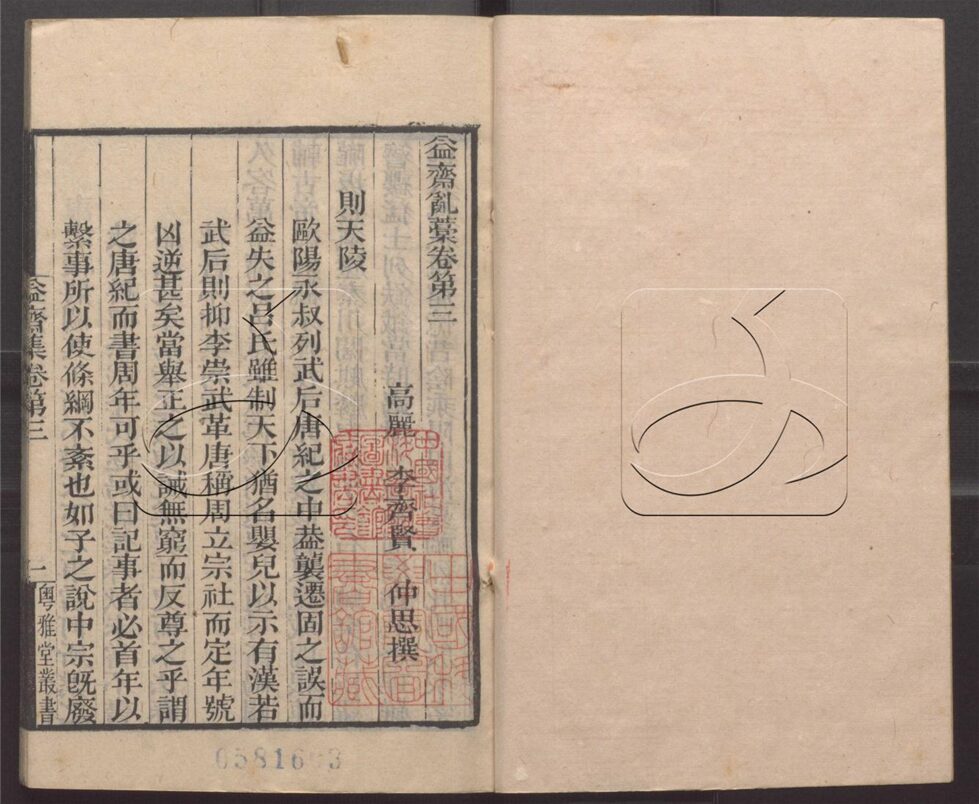 益齋亂藁卷第三
高麗 李齊賢 仲思撰
則天陵
歐陽永叔列武后唐紀之中葢襲遷固之誤而
益失之呂氏雖制天下猶名嬰兒以示有漢若
武后則抑李崇武革唐稱周立宗社而定年號
凶逆甚矣當舉正之以誡無窮而反尊之乎謂
之唐紀而書周年可乎或曰記事者必首年以
繫事所以使條綱不紊也如子之說中宗旣廢
益齋集卷第三
一
粵雅堂叢書